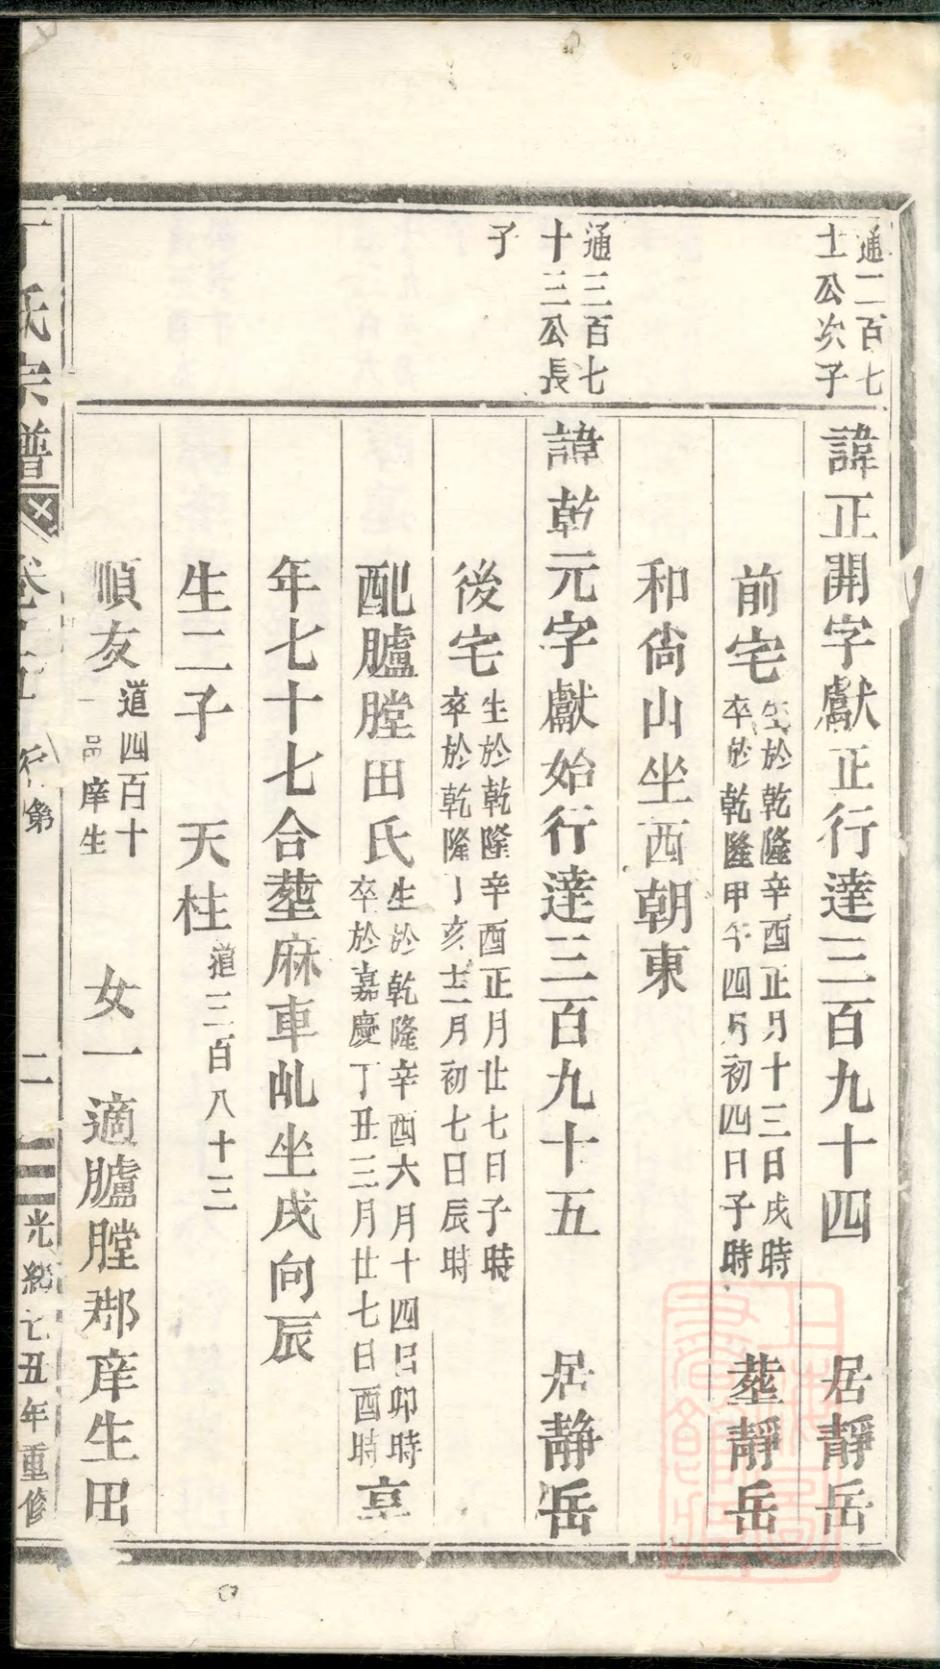 通二百七
士公次子
諱正開字獻正行達三百九十四 居靜岳
前宅
生於乾隆辛酉正月十三日戌時
卒於乾隆甲午四月初四日子時
塟靜岳
和尚山坐西朝東
通三百七
十三公長
子
諱乾元字獻始行達三百九十五 居靜岳
後宅
生於乾隆辛酉正月廿七日子時
卒於乾隆丁亥十二月初七日辰時
配臚膛田氏
生於乾隆辛酉六月十四日卯時
卒於嘉慶丁丑三月廿七日酉時
享
年七十七合塟麻車乩坐戌向辰
生二子 天柱
道三百八十三
順友
道四百十
一 邑庠生
女一適臚膛郡庠生田
丁氏宗譜 卷 行第 二 光緒丑年重修